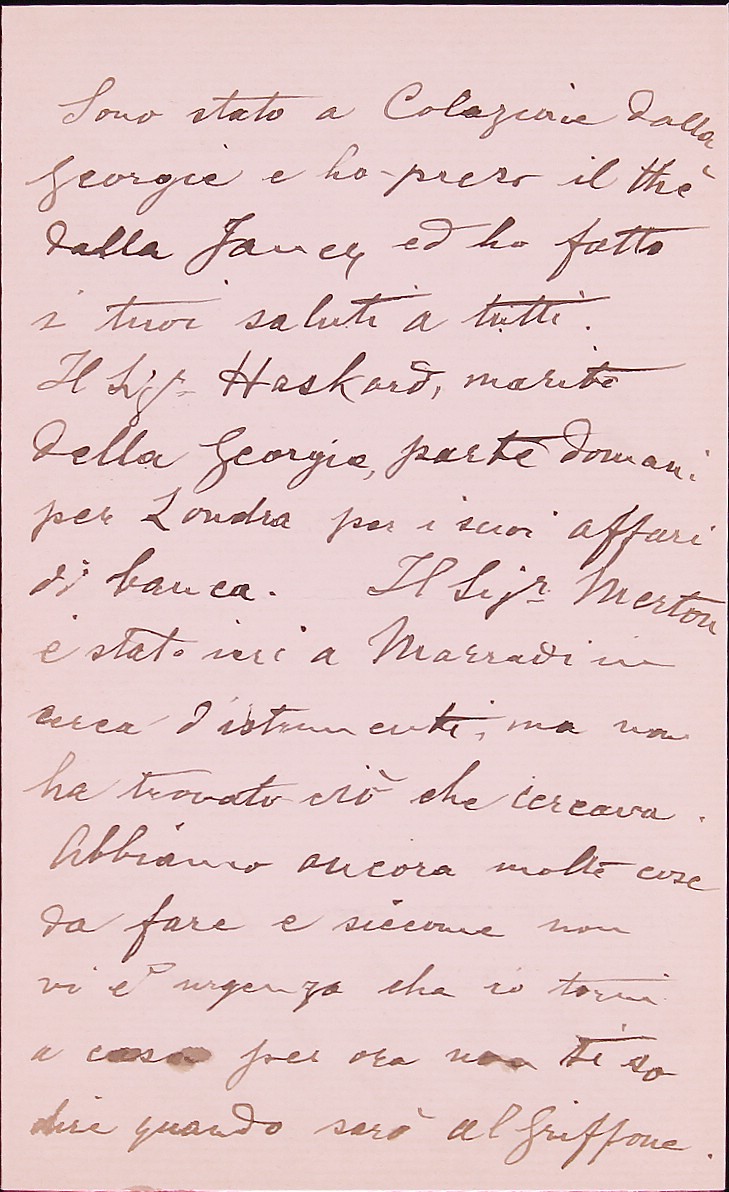 Sono stato a Colazione dalla
Georgie e ho preso il thè
dalla Janey ed ho fatto
i tuoi saluti a tutti.
Il Sigr Haskard, marito
della Georgie, parte domani
per Londra per i suoi affari
di banca. Il Sigr Merton
è stato ieri a Marradi in
cerca d'istrumenti, ma non
ha trovato ciò che cercava.
Abbiamo ancora molte cose
da fare e siccome non
vi è urgenza che io torni
a casa per ora non ti so
dire quando sarò al Griffone.